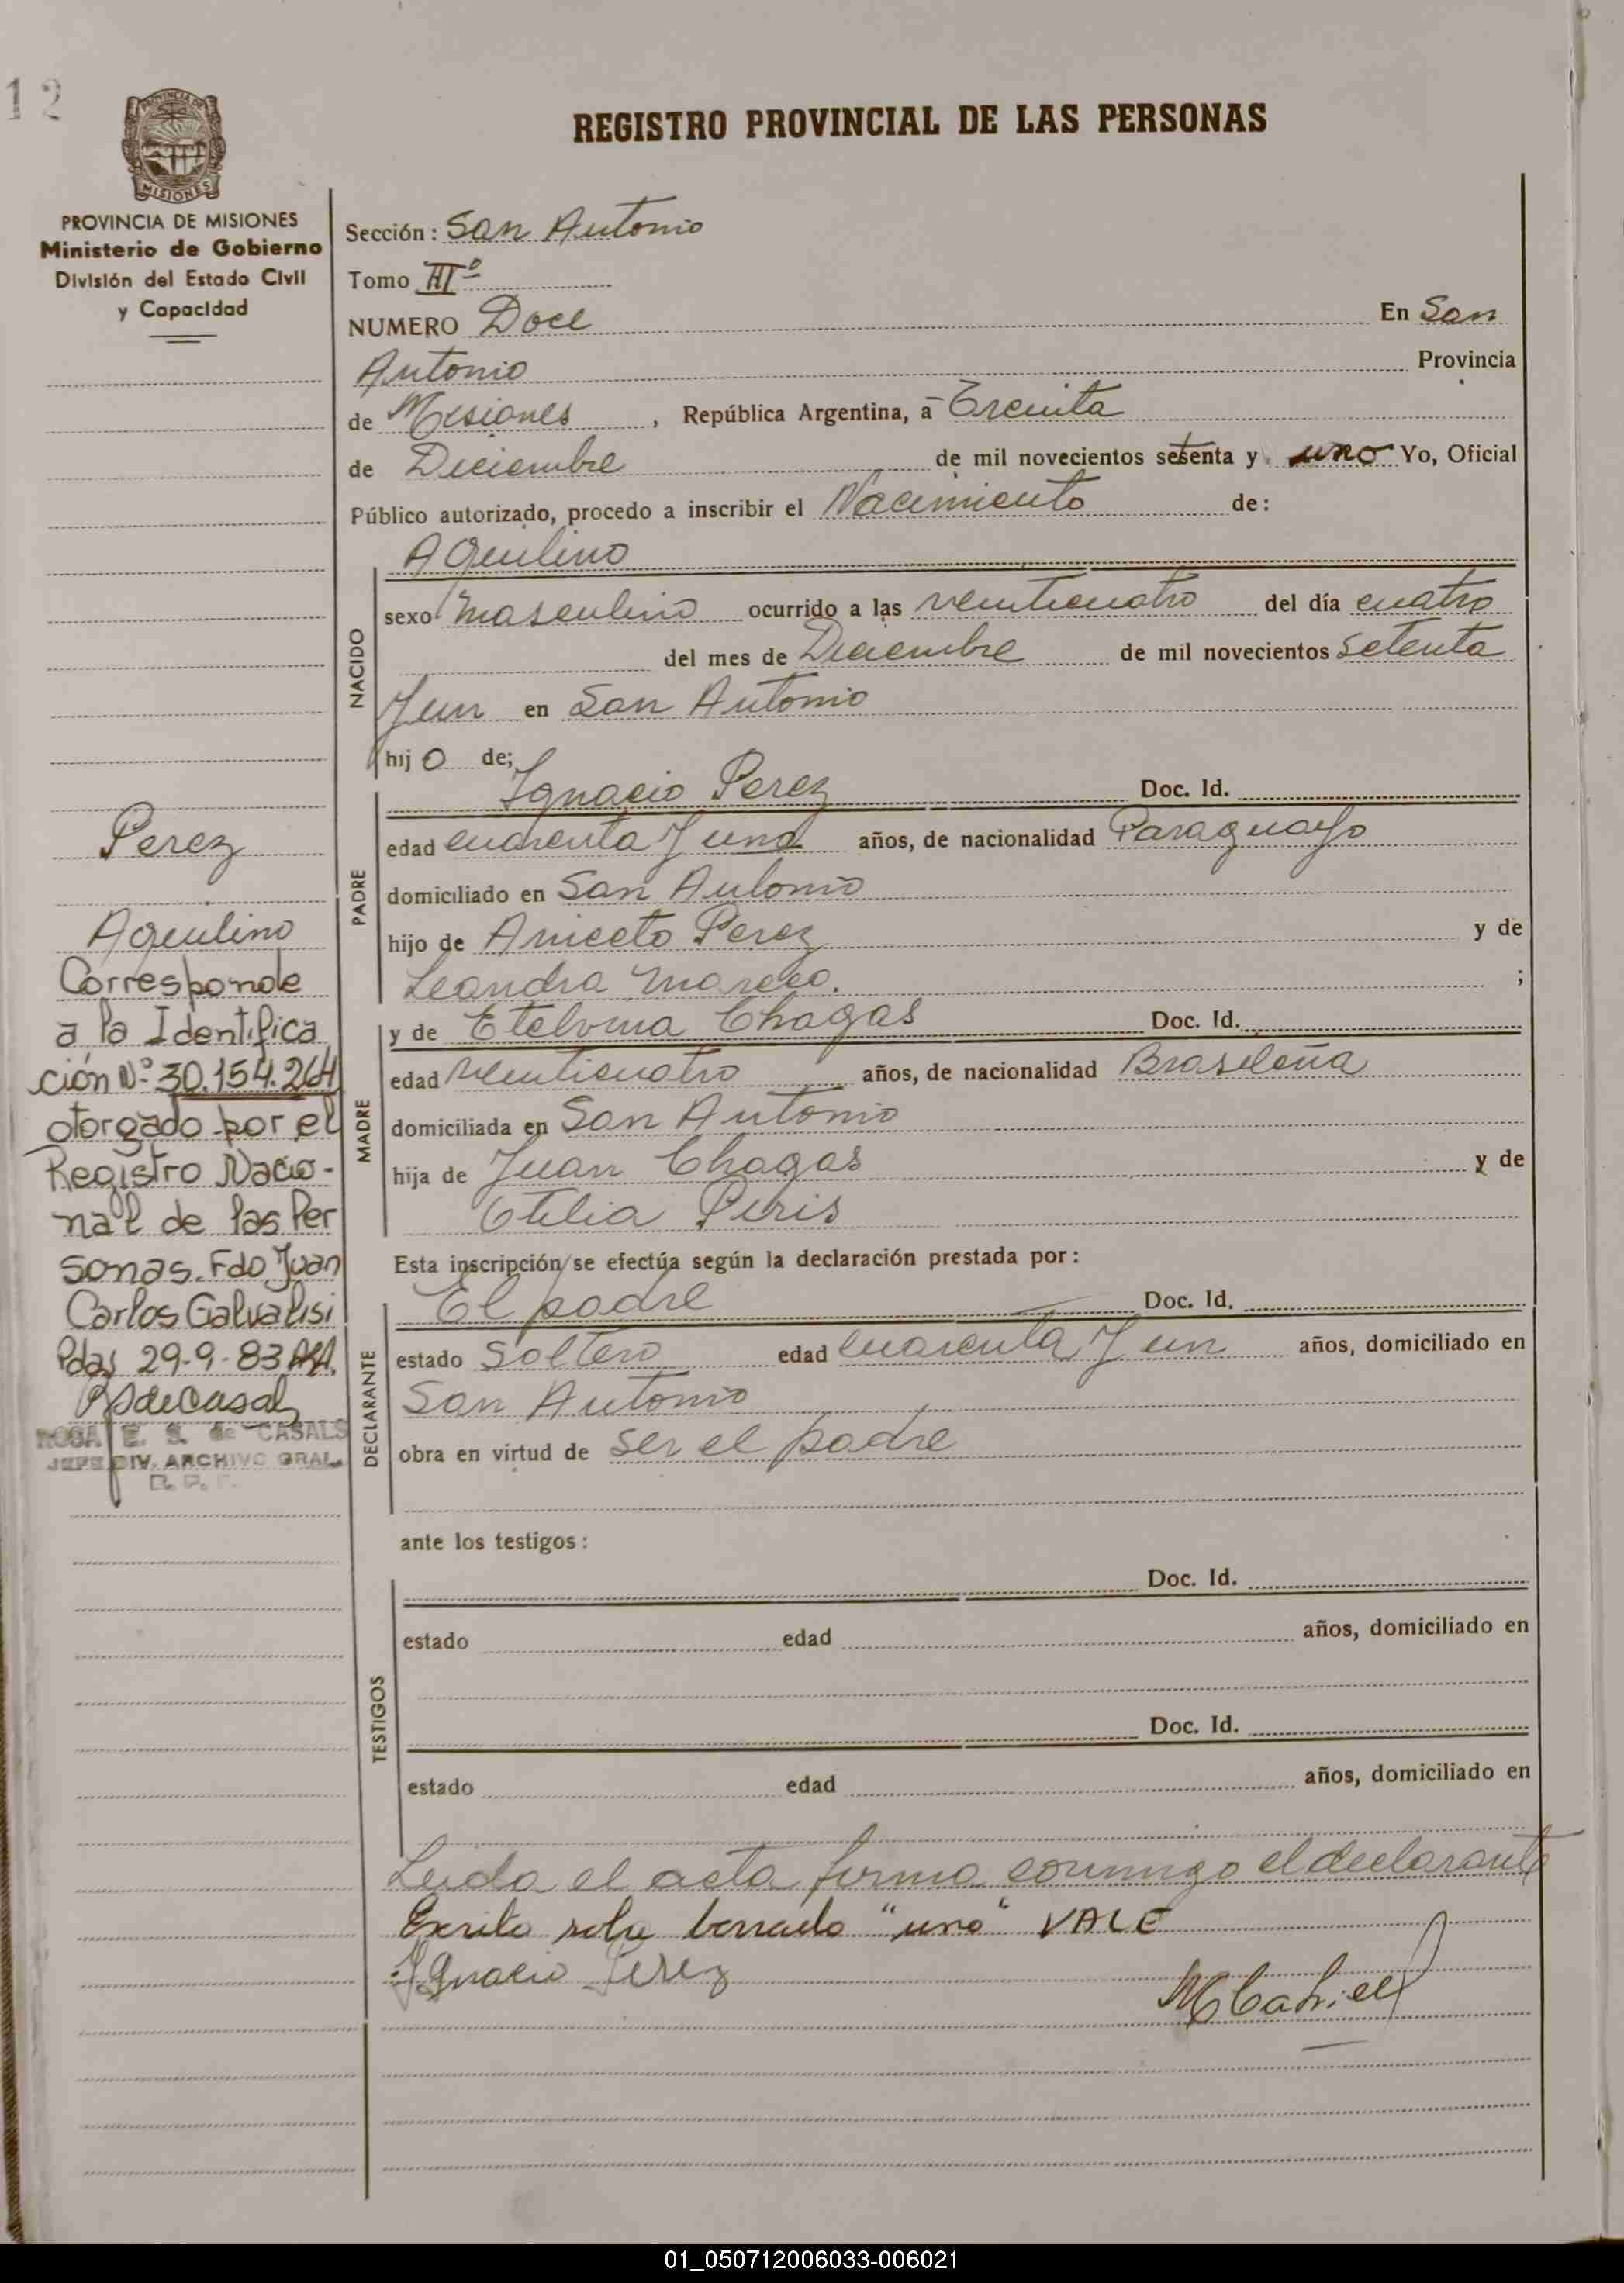 12
PROVINCIA DE
MISIONES
PROVINCIA DE MISIONES
Ministerio de Gobierno
División del Estado Civil
y Capacidad
REGISTRO PROVINCIAL DE LAS PERSONAS
Sección: San Antonio
Tomo III º
NUMERO Doce En San
Antonio Provincia
de Misiones, República Argentina, a Treinta
de Diciembre de mil novecientos setenta y uno Yo, Oficial
Público autorizado, procedo a inscribir el Nacimiento de:
Aquilino
NACIDO
sexo masculino ocurrido a las veinticuatro del día cuatro
del mes de Diciembre de mil novecientos setenta
y un en San Antonio
hijo de;
PADRE
Ignacio Perez Doc. Id.
edad cuarenta y uno años, de nacionalidad Paraguayo
domiciliado en San Antonio
hijo de Aniceto Perez y de
Leandra ;
MADRE
y de Etelvina Chagas Doc. Id.
edad veinticuatro años, de nacionalidad Brasileña
domiciliada en San Antonio
hija de Juan Chagas y de
Otilia Piris
Esta inscripción se efectúa según la declaración prestada por:
DECLARANTE
El padre Doc. Id.
estado Soltero edad cuarenta y un años, domiciliado en
San Antonio
obra en virtud de ser el padre
ante los testigos:
TESTIGOS
Doc. Id.
estado edad años, domiciliado en
Doc. Id.
estado edad años, domiciliado en
Leida el acta firma conmigo el declarante
Escrito sobre borrado "uno" VALE
Ignacio Perez
Perez
Aquilino
Corresponde
a la Identifica
ción Nº 30.154.264
otorgado por el
Registro Nacio-
nal de las Per
sonas. Fdo Juan
Carlos Galvalisi
Pdas 29-9-83
ROSA E. S. de CASALS
JEFE DIV. ARCHIVO GRAL.
R. P.
01_050712006033-006021